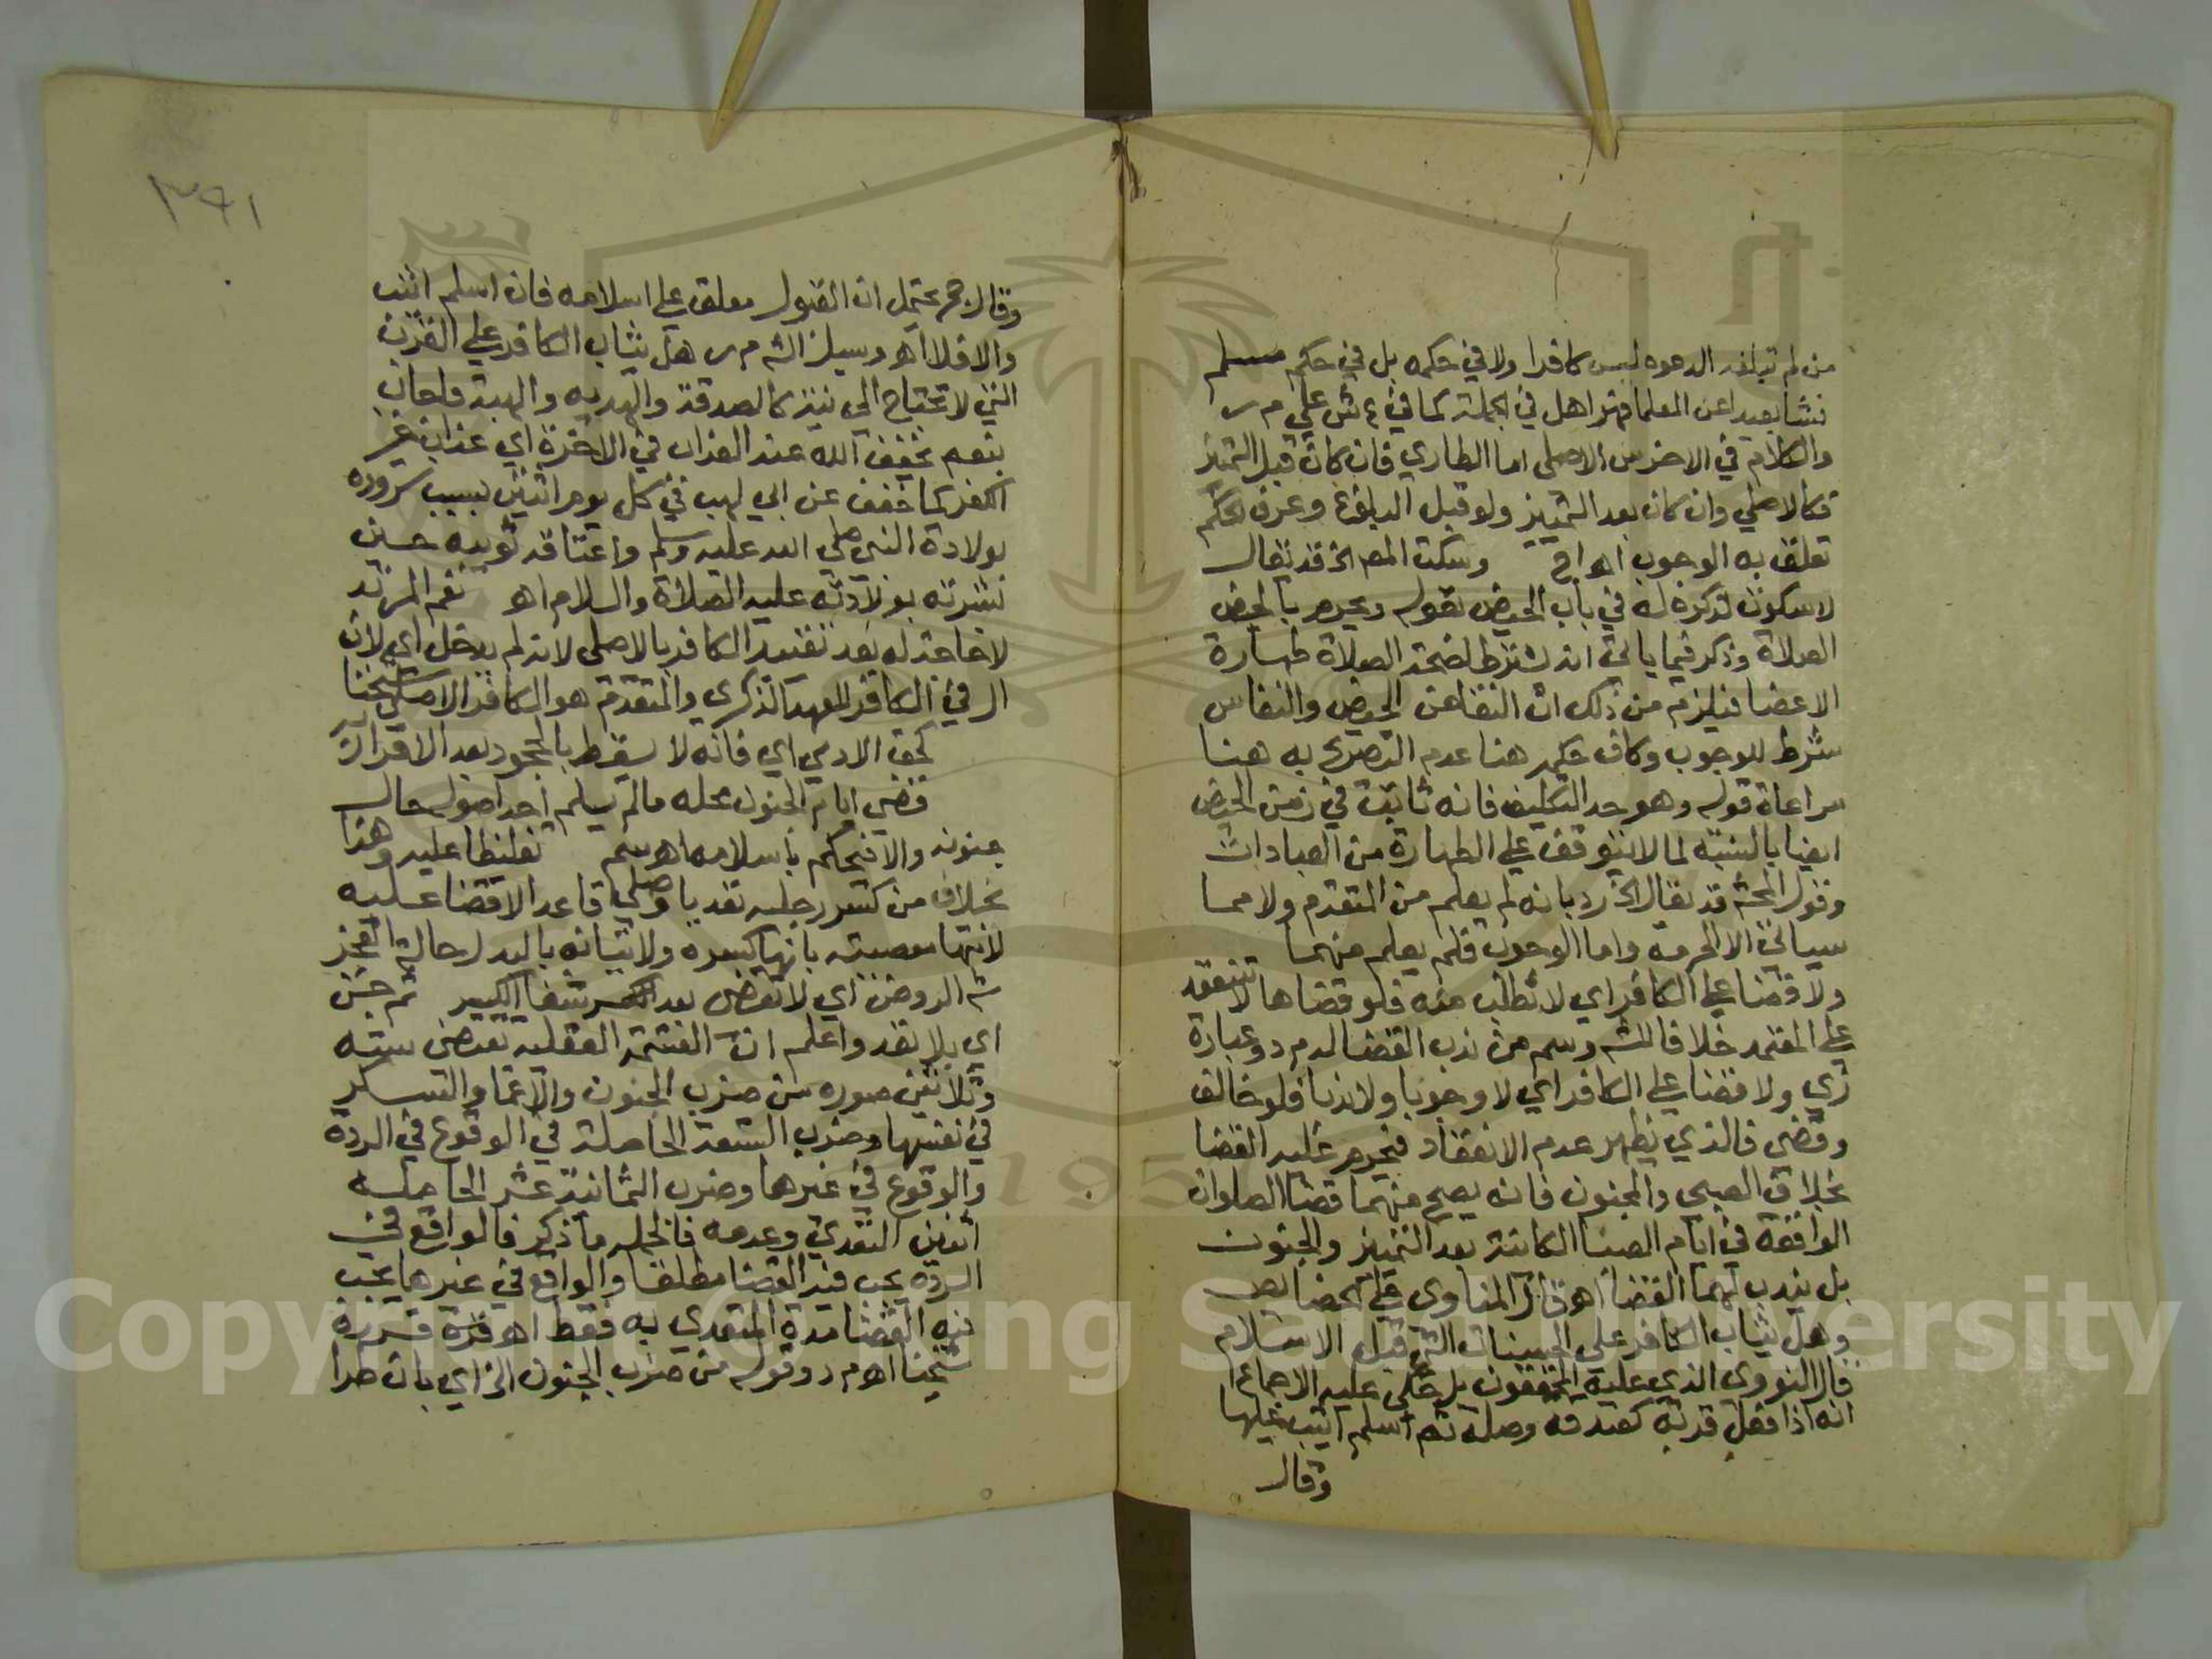 من لم تبلغه الدعوه ليس كافرا ولا في حكمه بل في حكم مسلم
نشا بعيدا عن العلما في الجملة كما في ع ش علي م ر
والكلام في الاخرس الاصلى اما الطاري فان كان قبل التميز
فكالاصلي وان كان بعد التمييز ولو قبل البلوغ وعرف الحكم
تعلق به الوجوب اهـ اج وسكت المص الخ قد يقال
لا سكوت لذكره له في باب الحيض بقوله ويحرم بالحيض
الصلاة وذكر فيما ياتي انه يشترط لصحة الصلاة طهارة
الاعضا فيلزم من ذلك ان النقا عن الحيض والنفاس
شرط للوجوب وكان حكم هنا عدم التصريح به هنا
مراعاة قوله وهو حد التكليف فانه ثابت في زمن الحيض
ايضا بالنسبة لما لا يتوقف علي الطهارة من العبادات
وقول المحشى قد يقال الخ رد بانه لم يعلم من المتقدم ولا مما
سياتي الا الحرمة واما الوجوب فلم يعلم منهما
ولا قضا علي الكافر اي لا تطلب منه فلو قضاها لا تنعقد
علي المعتمد خلافا للشـ وسم من ندب القضا له م د وعبارة
زي ولا قضا علي الكافر اي لا وجوبا ولا ندبا فلو خالف
وقضى فالذي يظهر عدم الانعقاد فيحرم عليه القضا
بخلاف الصبي والمجنون فانه يصح منهما قضا الصلوات
الواقعة في ايام الصبا الكائنة بعد التمييز والجنون
بل يندب لهما القضا اهـ قال المناوي علي الخصايص
وهل يثاب الكافر على الحسنات التي قبل الاسلام
قال النووى الذي عليه المحققون بل حكي عليه الاجماع
انه اذا فعل قربة كصدقة وصلة ثم اسلم اثيب عليها
وقال
٣٩١
وقال حج يحتمل ان القبول معلق علي اسلامه فان اسلم اثيب
والا فلا اهـ وسيل الشـ م ر هل يثاب الكافر علي القرب
التي لا تحتاج الي نية كالصدقة والهديه والهبة فاجاب
بنعم يخفف الله عنه العذاب في الاخرة اي عذاب غير
الكفر كما خفف عن ابي لهب في كل يوم اثنين بسبب سروره
بولادة النبي صلي الله عليه وسلم واعتاقه ثويبه حين
بشرته بولادته عليه الصلاة والسلام اهـ نعم المرتد
لا حاجة له بعد تقييد الكافر بالاصلى لانه لم يدخل اي لان
ال في الكافر للعهد الذكري والمتقدم هو الكافر الاصلي شيخنا
كحق الادمي اي فانه لا يسقط بالجحود بعد الاقرار
قضى ايام الجنون محله مالم يسلم احد اصوله حال
جنونه والا فيحكم باسلامه اهـ سم تغليظا عليه وهذا
بخلاف من كسر رجليه تعديا وصلي قاعدا لا قضا عليه
لانتها معصيته بانتها كسره ولاتيانه بالبدل حالة العجز
شـ الروض اي لا تعض بعد شفا الكسر ثم جن
اي بلا تعد واعلم ان القسمة العقلية تقتضى ستة
وثلاثين صوره من ضرب الجنون والاغما والسكر
في نفسها وضرب التسعة الحاصلة في الوقوع في الردة
والوقوع في غيرها وضرب الثمانية عشر الحاصلة
اثنين التعدي وعدمه فالحاصل ما ذكر فالواقع في
الردة يجب فيه القضا مطلقا والواقع في غيرها يجب
فيه القضا مدة المتعدي به فقط اهـ قرره
شيخنا اهـ م د وقوله من ضرب الجنون الخ اي بان طرا